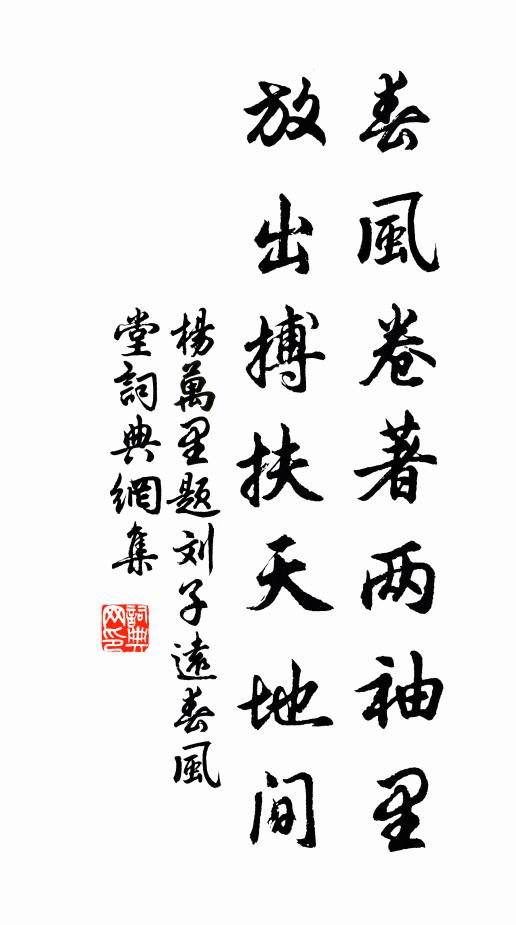 春風卷著两袖里
放出搏扶天地间
楊萬里题刘子遠春風
堂詞典網集
詞典
网印